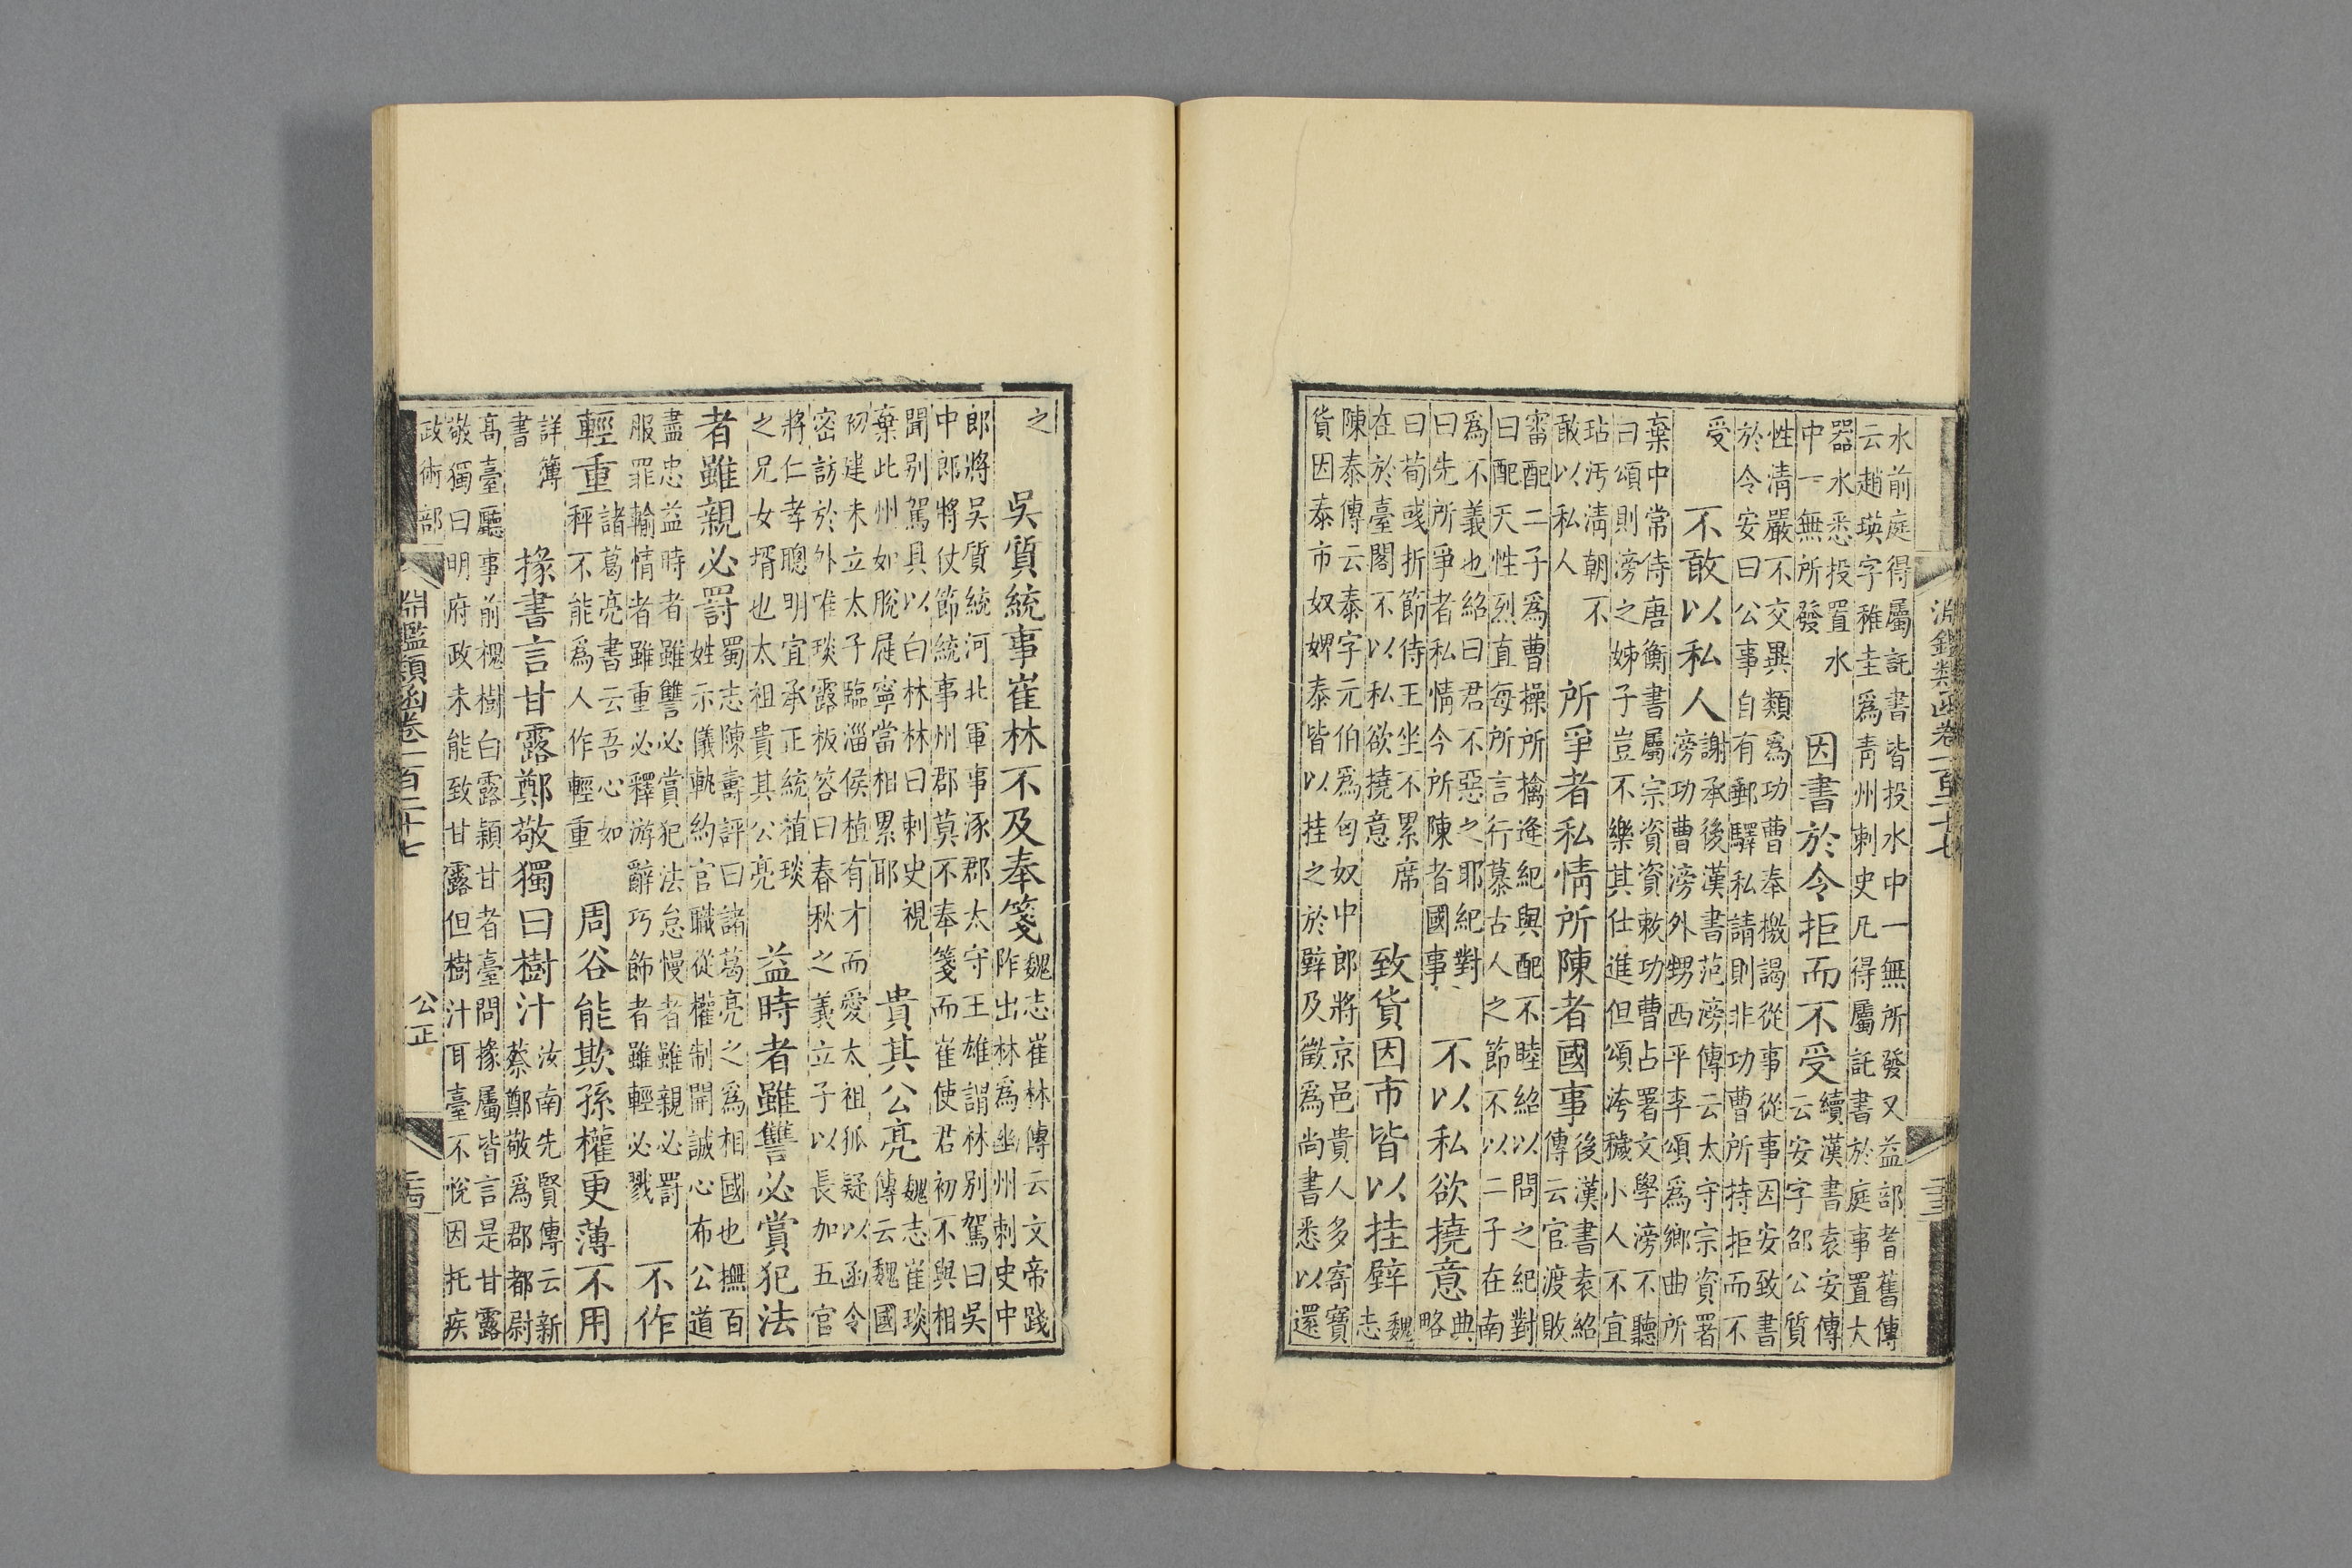 淵鑑類函卷一百二十七
二三
水前庭得屬託書皆投水中一無所發又益部耆舊傳
云趙瑛字稚圭爲青州刺史凡得屬託書於庭事置大
器水悉投置水
中一無所發
因書於令拒而不受
續漢書袁安傳
云安字邵公質
性淸嚴不交異類爲功曹奉檄謁從事從事因安致書
於令安曰公事自有郵驛私請則非功曹所持拒而不
受
不敢以私人
謝承後漢書范滂傳云太守宗資署
滂功曹滂外甥西平李頌爲鄉曲所
棄中常侍唐衡書屬宗資資敕功曹占署文學滂不聽
曰頌則滂之姊子豈不樂其仕進但頌洿穢小人不宜
玷汚淸朝不
敢以私人
所爭者私情所陳者國事
後漢書袁紹
傳云官渡敗
審配二子爲曹操所擒逄紀與配不睦紹以問之紀對
曰配天性烈直每所言行慕古人之節不以二子在南
爲不義也紹曰君不惡之耶紀對
曰先所爭者私情今所陳者國事
不以私欲撓意
典
略
曰荀彧折節侍王坐不累席
在於臺閣不以私欲撓意
致貨因市皆以挂壁
魏
志
陳泰傳云泰字元伯爲匈奴中郎將京邑貴人多寄寶
貨因泰市奴婢泰皆以挂之於壁及徵爲尚書悉以還
之
吳質統事崔林不及奉箋
魏志崔林傳云文帝踐
阼出林爲幽州刺史中
郎將吳質統河北軍事涿郡太守王雄謂林別駕曰吳
中郎將仗節統事州郡莫不奉箋而崔使君初不與相
聞別駕具以白林林曰刺史視
棄此州如脫屣寧當相累耶
貴其公亮
魏志崔琰
傳云魏國
初建未立太子臨淄侯植有才而愛太祖狐疑以函令
密訪於外唯琰露板答曰春秋之義立子以長加五官
將仁孝聰明宜承正統植琰
之兄女壻也太祖貴其公亮
益時者雖讐必賞犯法
者雖親必罰
蜀志陳壽評曰諸葛亮之爲相國也撫百
姓示儀軌約官職從權制開誠心布公道
盡忠益時者雖讐必賞犯法怠慢者雖親必罰
服罪輸情者雖重必釋游辭巧飾者雖輕必戮
不作
輕重
諸葛亮書云吾心如
秤不能爲人作輕重
周谷能欺孫權更薄不用
詳簿
書
掾書言甘露鄭敬獨曰樹汁
汝南先賢傳云新
蔡鄭敬爲郡都尉
高臺聽事前槐樹白露穎甘者臺問掾屬皆言是甘露
敬獨曰明府政未能致甘露但樹汁耳臺不悅因托疾
政術部
淵鑑類函卷一百二十七
公正
二四